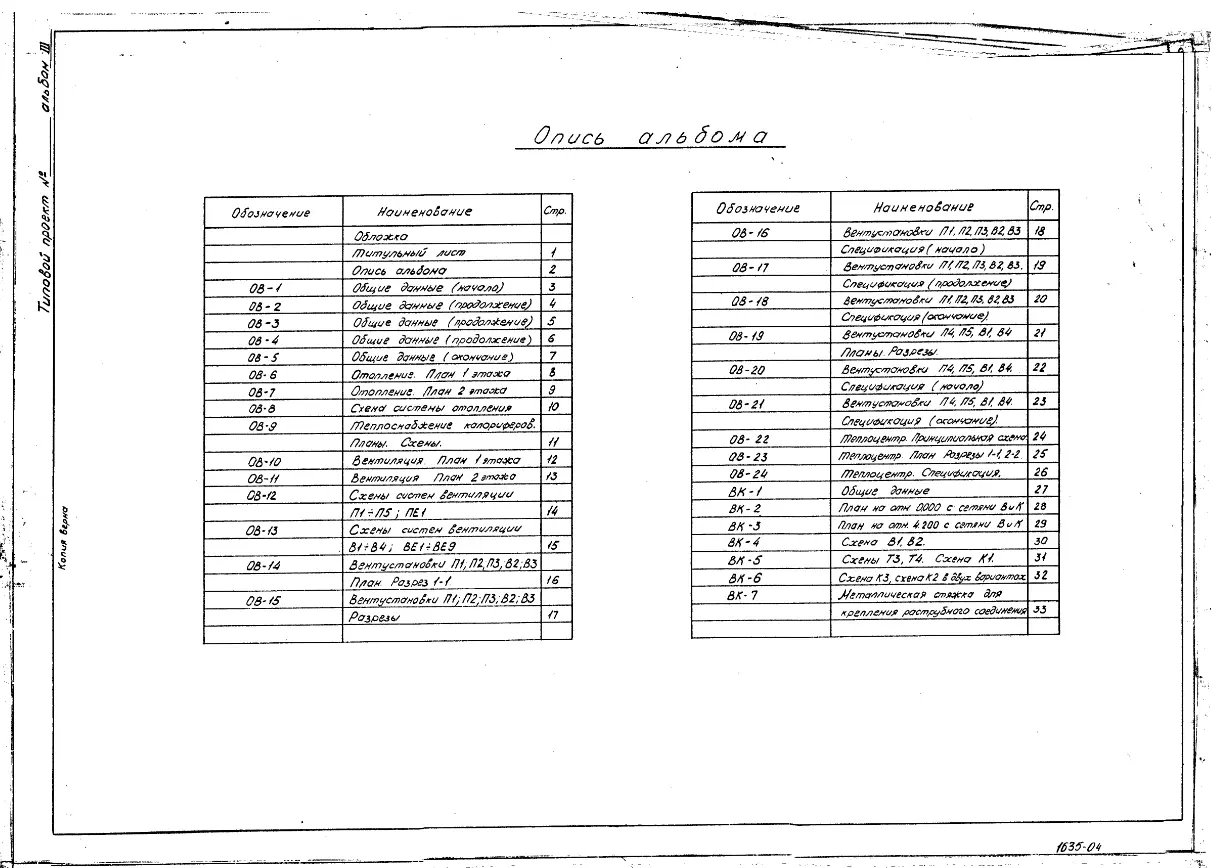 Типовой проект № альбом III
Копия верна
Опись альбома
Обозначение Наименование Стр.
Обложка
Титульный лист 1
Опись альбома 2
ОВ-1 Общие данные (начало) 3
ОВ-2 Общие данные (продолжение) 4
ОВ-3 Общие данные (продолжение) 5
ОВ-4 Общие данные (продолжение) 6
ОВ-5 Общие данные (окончание) 7
ОВ-6 Отопление. План 1 этажа 8
ОВ-7 Отопление. План 2 этажа 9
ОВ-8 Схема системы отопления 10
ОВ-9 Теплоснабжение калориферов.
Планы. Схемы. 11
ОВ-10 Вентиляция План 1 этажа 12
ОВ-11 Вентиляция План 2 этажа 13
ОВ-12 Схемы систем вентиляции
П1÷П5; ПЕ1 14
ОВ-13 Схемы систем вентиляции
В1÷В4; ВЕ1÷ВЕ9 15
ОВ-14 Вентустановки П1, П2, П3, В2; В3
План Разрез 1-1 16
ОВ-15 Вентустановки П1; П2; П3; В2; В3
Разрезы 17
Обозначение Наименование Стр.
ОВ-16 Вентустановки П1, П2, П3, В2, В3 18
Спецификация (начало)
ОВ-17 Вентустановки П1, П2, П3, В2, В3. 19
Спецификация (продолжение)
ОВ-18 Вентустановки П1, П2, П3, В2, В3 20
Спецификация (окончание).
ОВ-19 Вентустановки П4, П5, В1, В4 21
Планы. Разрезы.
ОВ-20 Вентустановки П4, П5, В1, В4. 22
Спецификация (начало)
ОВ-21 Вентустановки П4, П5, В1, В4. 23
Спецификация (окончание).
ОВ-22 Теплоцентр. Принципиальная схема 24
ОВ-23 Теплоцентр. План Разрезы 1-1, 2-2 25
ОВ-24 Теплоцентр. Спецификация. 26
ВК-1 Общие данные 27
ВК-2 План на отм 0.000 с сетями ВиК 28
ВК-3 План на отм. 4.200 с сетями ВиК 29
ВК-4 Схема В1, В2. 30
ВК-5 Схемы Т3, Т4. Схема К1. 31
ВК-6 Схема К3, схема К2 в двух вариантах 32
ВК-7 Металлическая стяжка для
крепления раструбного соединения 33
1635-04